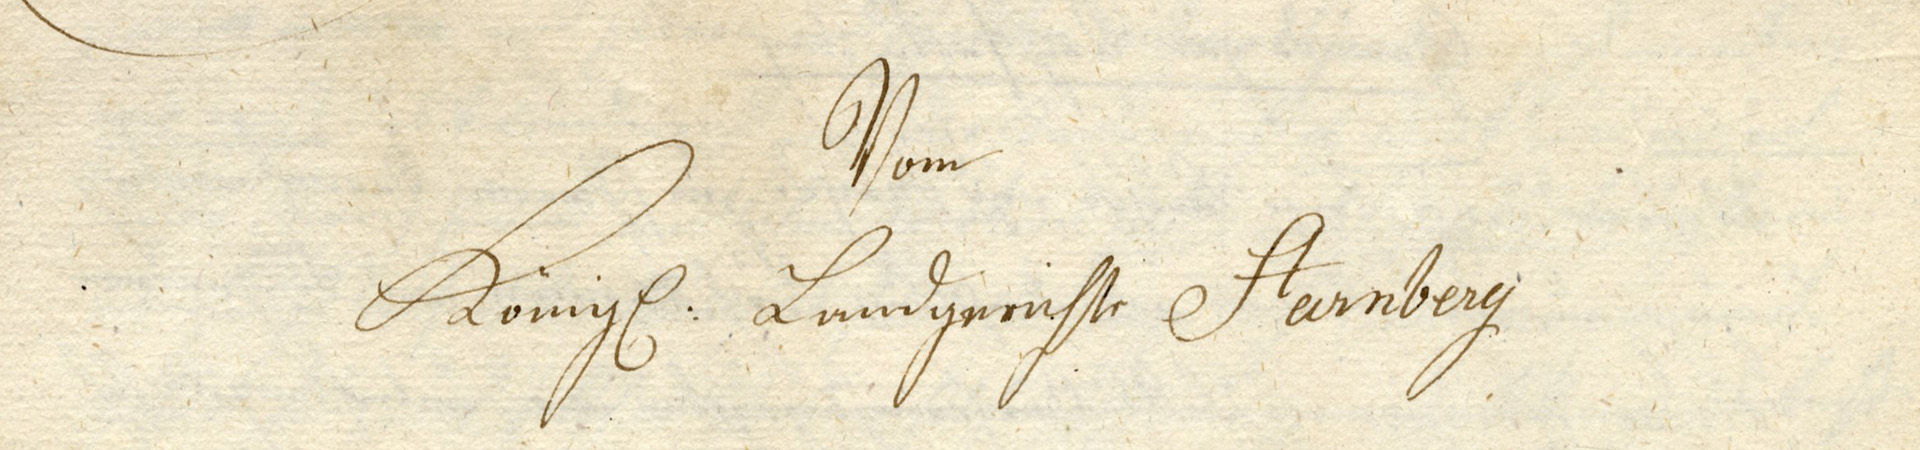 Vom
Königl: Landgerichte Starnberg